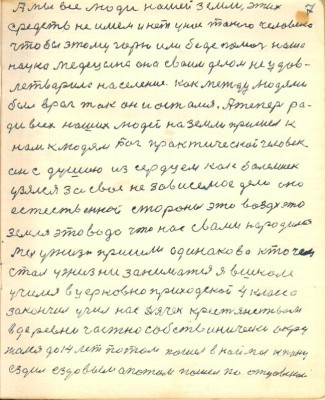 7
А мы все люди нашей земли, этих
средств не имеем и нет у нас такого человека
чтобы этому горю или беде помог наша
наука медецина она своим делом не удов-
летворила население. как между людями
был враг так он и остался. А теперь ра-
ди всех наших людей на земли пришел к
нам к людям Бог практической человек
он с душою из сердцем как болеющей
узялся за свое не зависемое дело по
естественной стороне это воздух это
земля это вода что нас с вами народило
мы у жизнь пришли одинаково кто чем
стал у жизни заниматся я в школе
учился в церковно приходской 4 класса
закончил учил нас дячек крестянством
в деревни частно собственически окру
жался до 14 лет потом пошел в найм к пану
ездил ездовым а потом пошел по отцовской